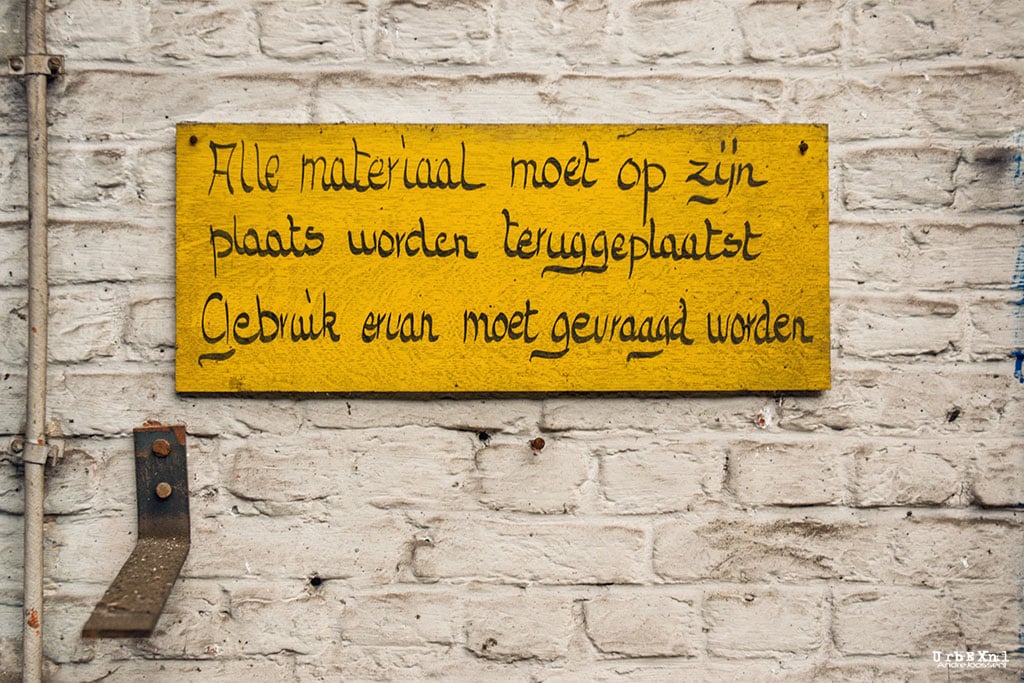 Alle materiaal moet op zijn
plaats worden teruggeplaatst
Gebruik ervan moet gevraagd worden
UrbEXnl